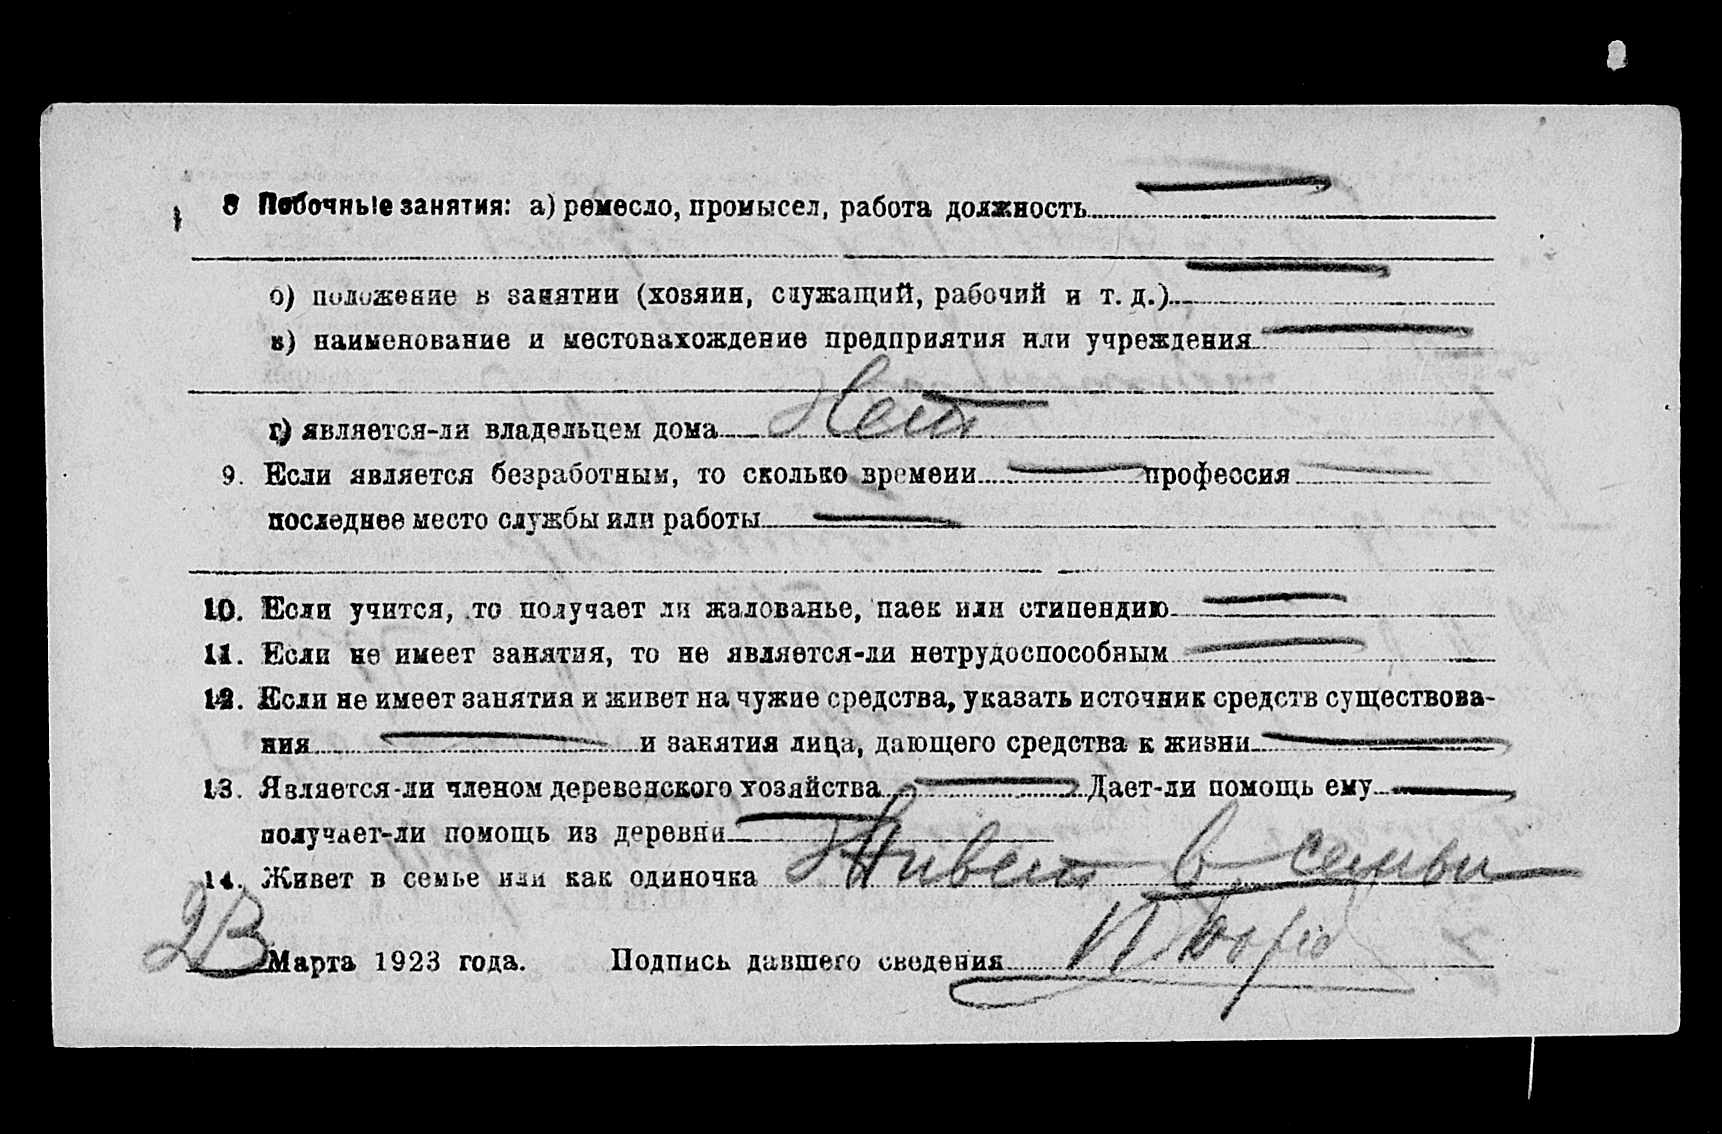 8 Побочные занятия: а) ремесло, промысел, работа должность
б) положение в занятии (хозяин, служащий, рабочий и т. д.)
в) наименование и местонахождение предприятия или учреждения
г) является-ли владельцем дома Нет
9. Если является безработным, то сколько времени профессия
последнее место службы или работы
10. Если учится, то получает ли жалованье, паек или стипендию
11. Если не имеет занятия, то не является-ли нетрудоспособным
12. Если не имеет занятия и живет на чужие средства, указать источник средств существова-
ния и занятия лица, дающего средства к жизни
13. Является-ли членом деревенского хозяйства Дает-ли помощь ему
получает-ли помощь из деревни
14. Живет в семье или как одиночка Живет в семьи
23 Марта 1923 года. Подпись давшего сведения